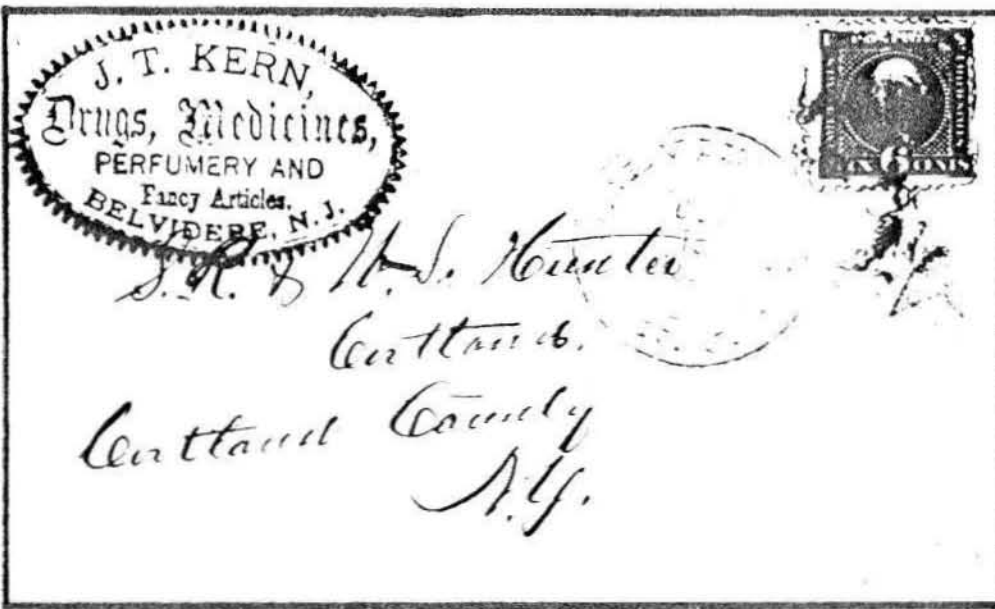 J. T. KERN,
Drugs, Medicines,
PERFUMERY AND
Fancy Articles,
BELVIDERE, N. J.
POSTAGE
SIX 6 CENTS
S. R. & W. S. Hunter
Cortland.
Cortland County
N.Y.